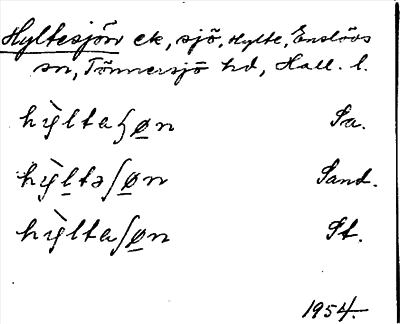 Hyltesjön ek, sjö, Hylte, Enslövs
sn, Tönnersjö hd, Hall. l.
hỳltaʒøn Sa.
hỳltəʃøn Sand.
hỳltaʃøn St.
1954.